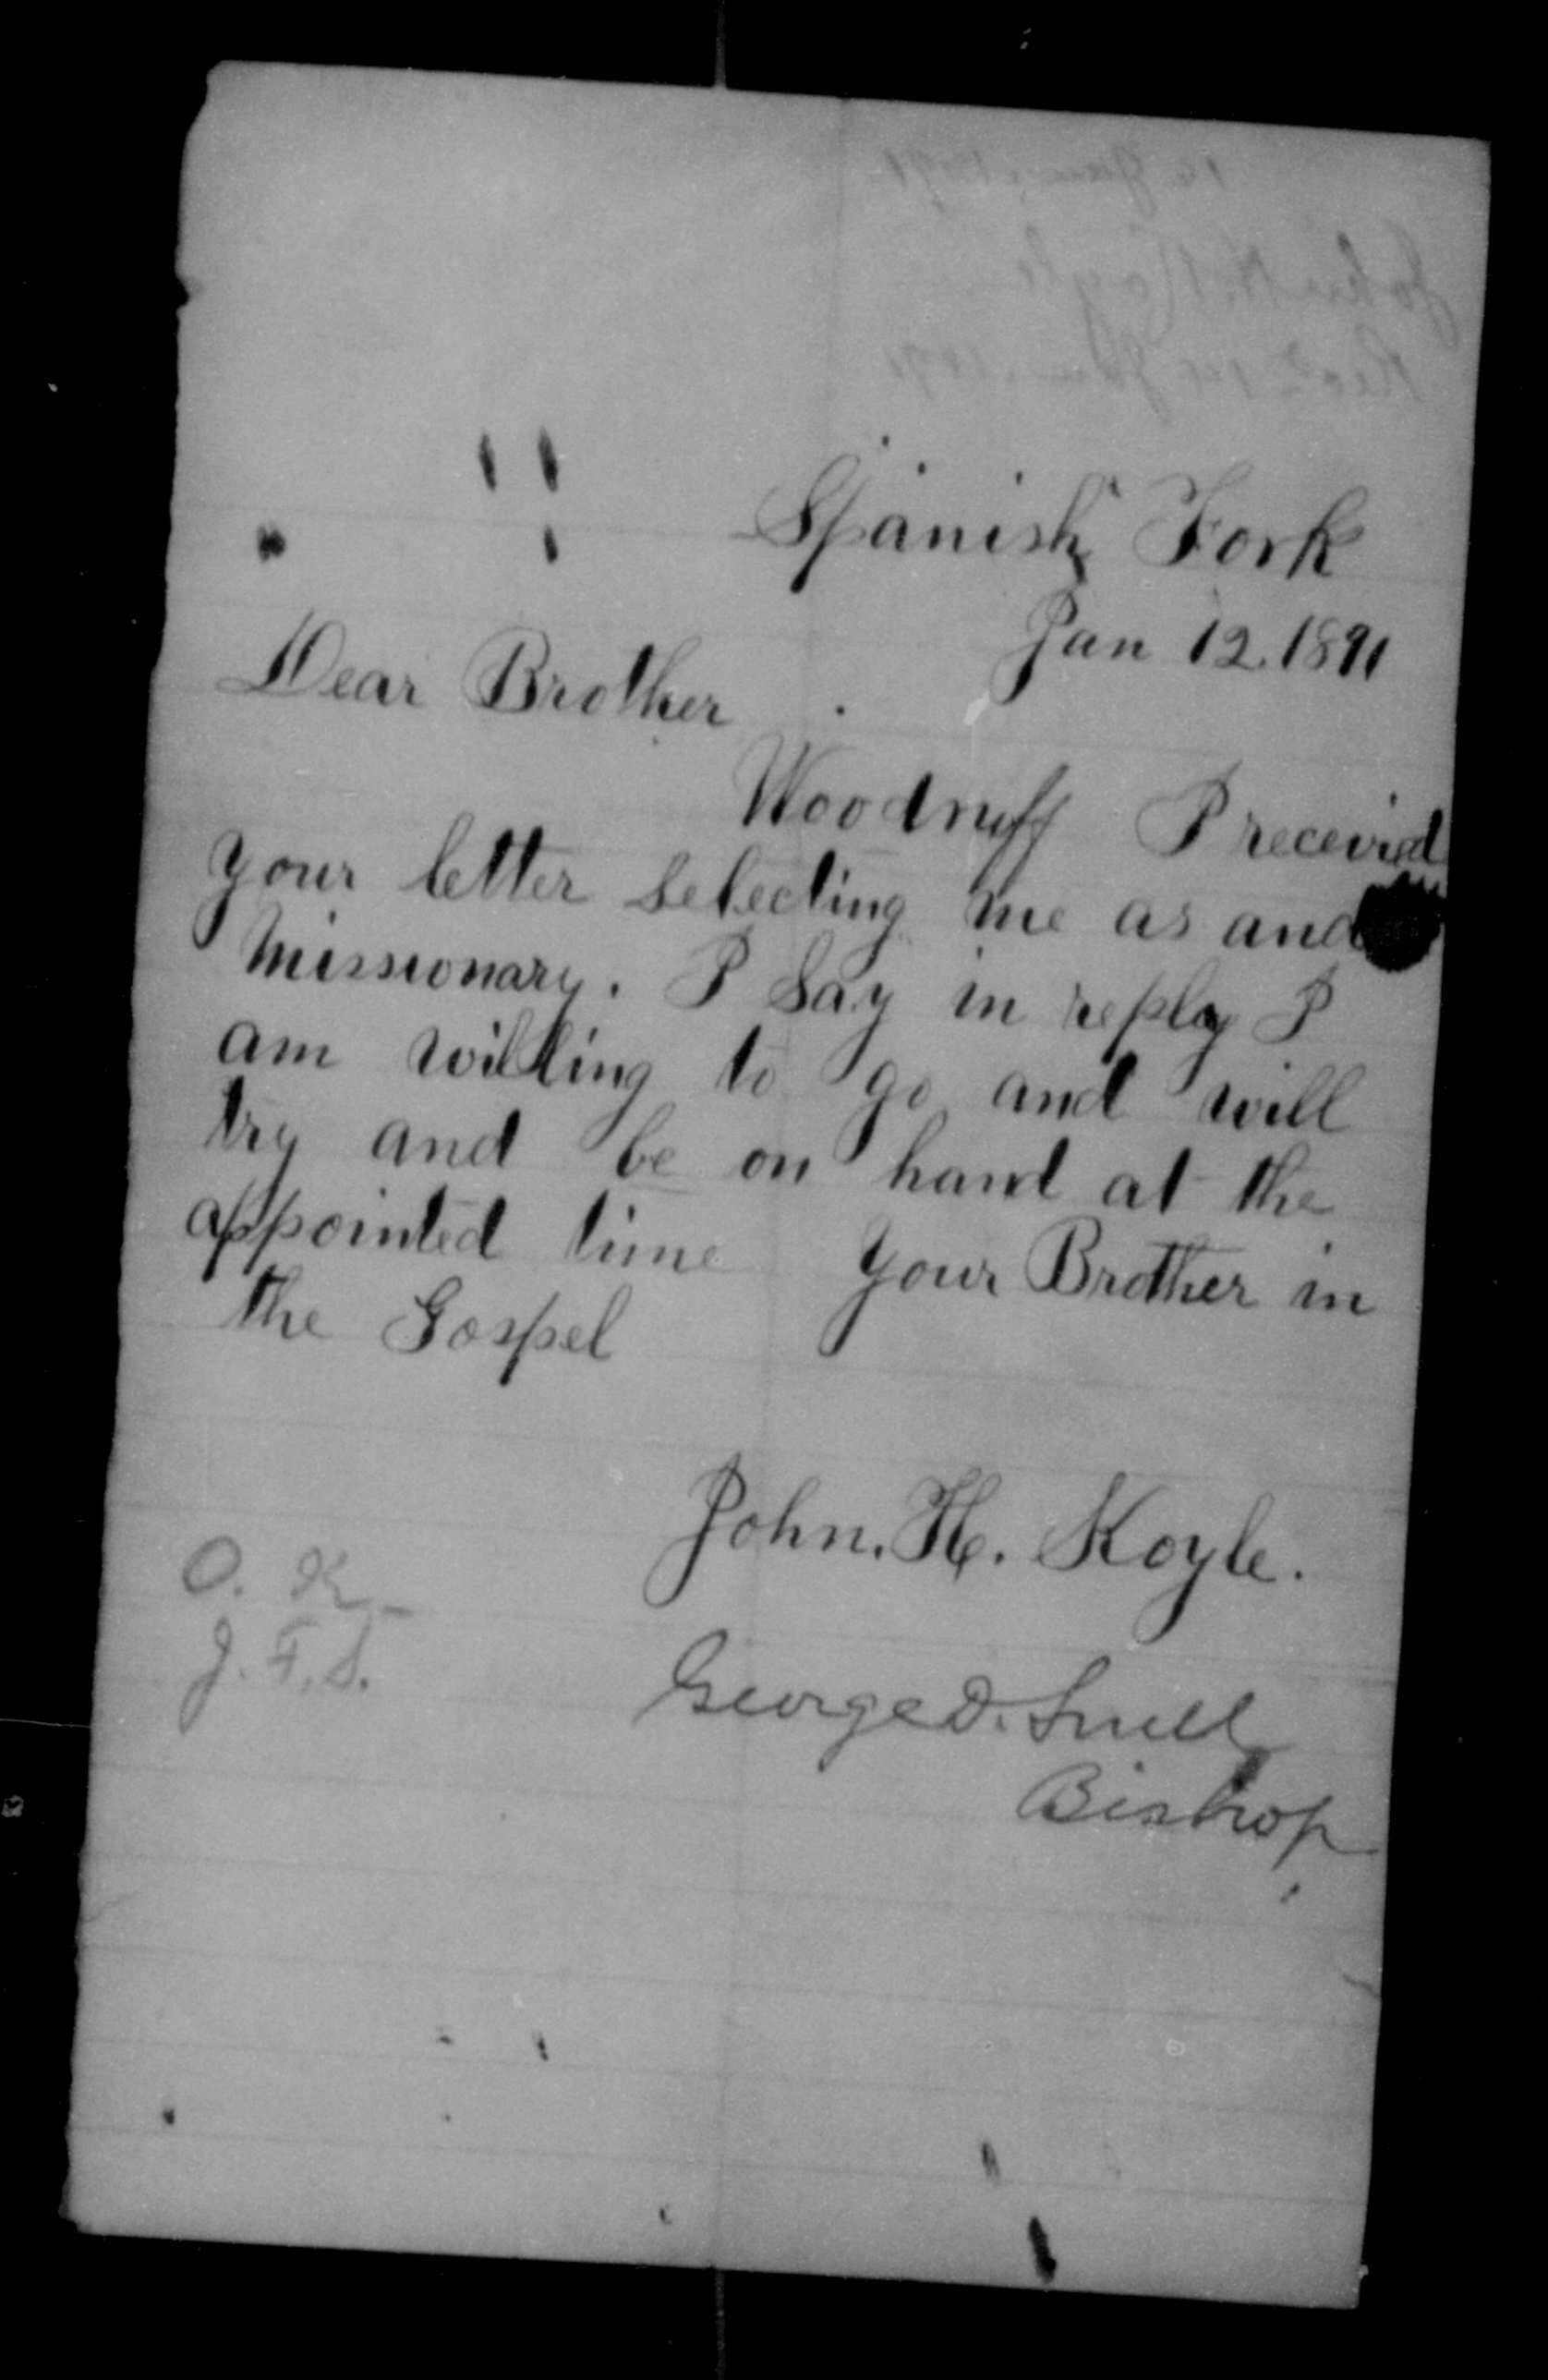 Spanish Fork
Jan 12. 1891
Dear Brother
Woodruff I recevied
your letter selecting me as and
Missionary. I Say in reply I
am willing to go and will
try and be on hand at the
appointed time your Brother in
the Gospel
John. H. Koyle.
O. K.
J. F. S.
George D. Snell
Bishop